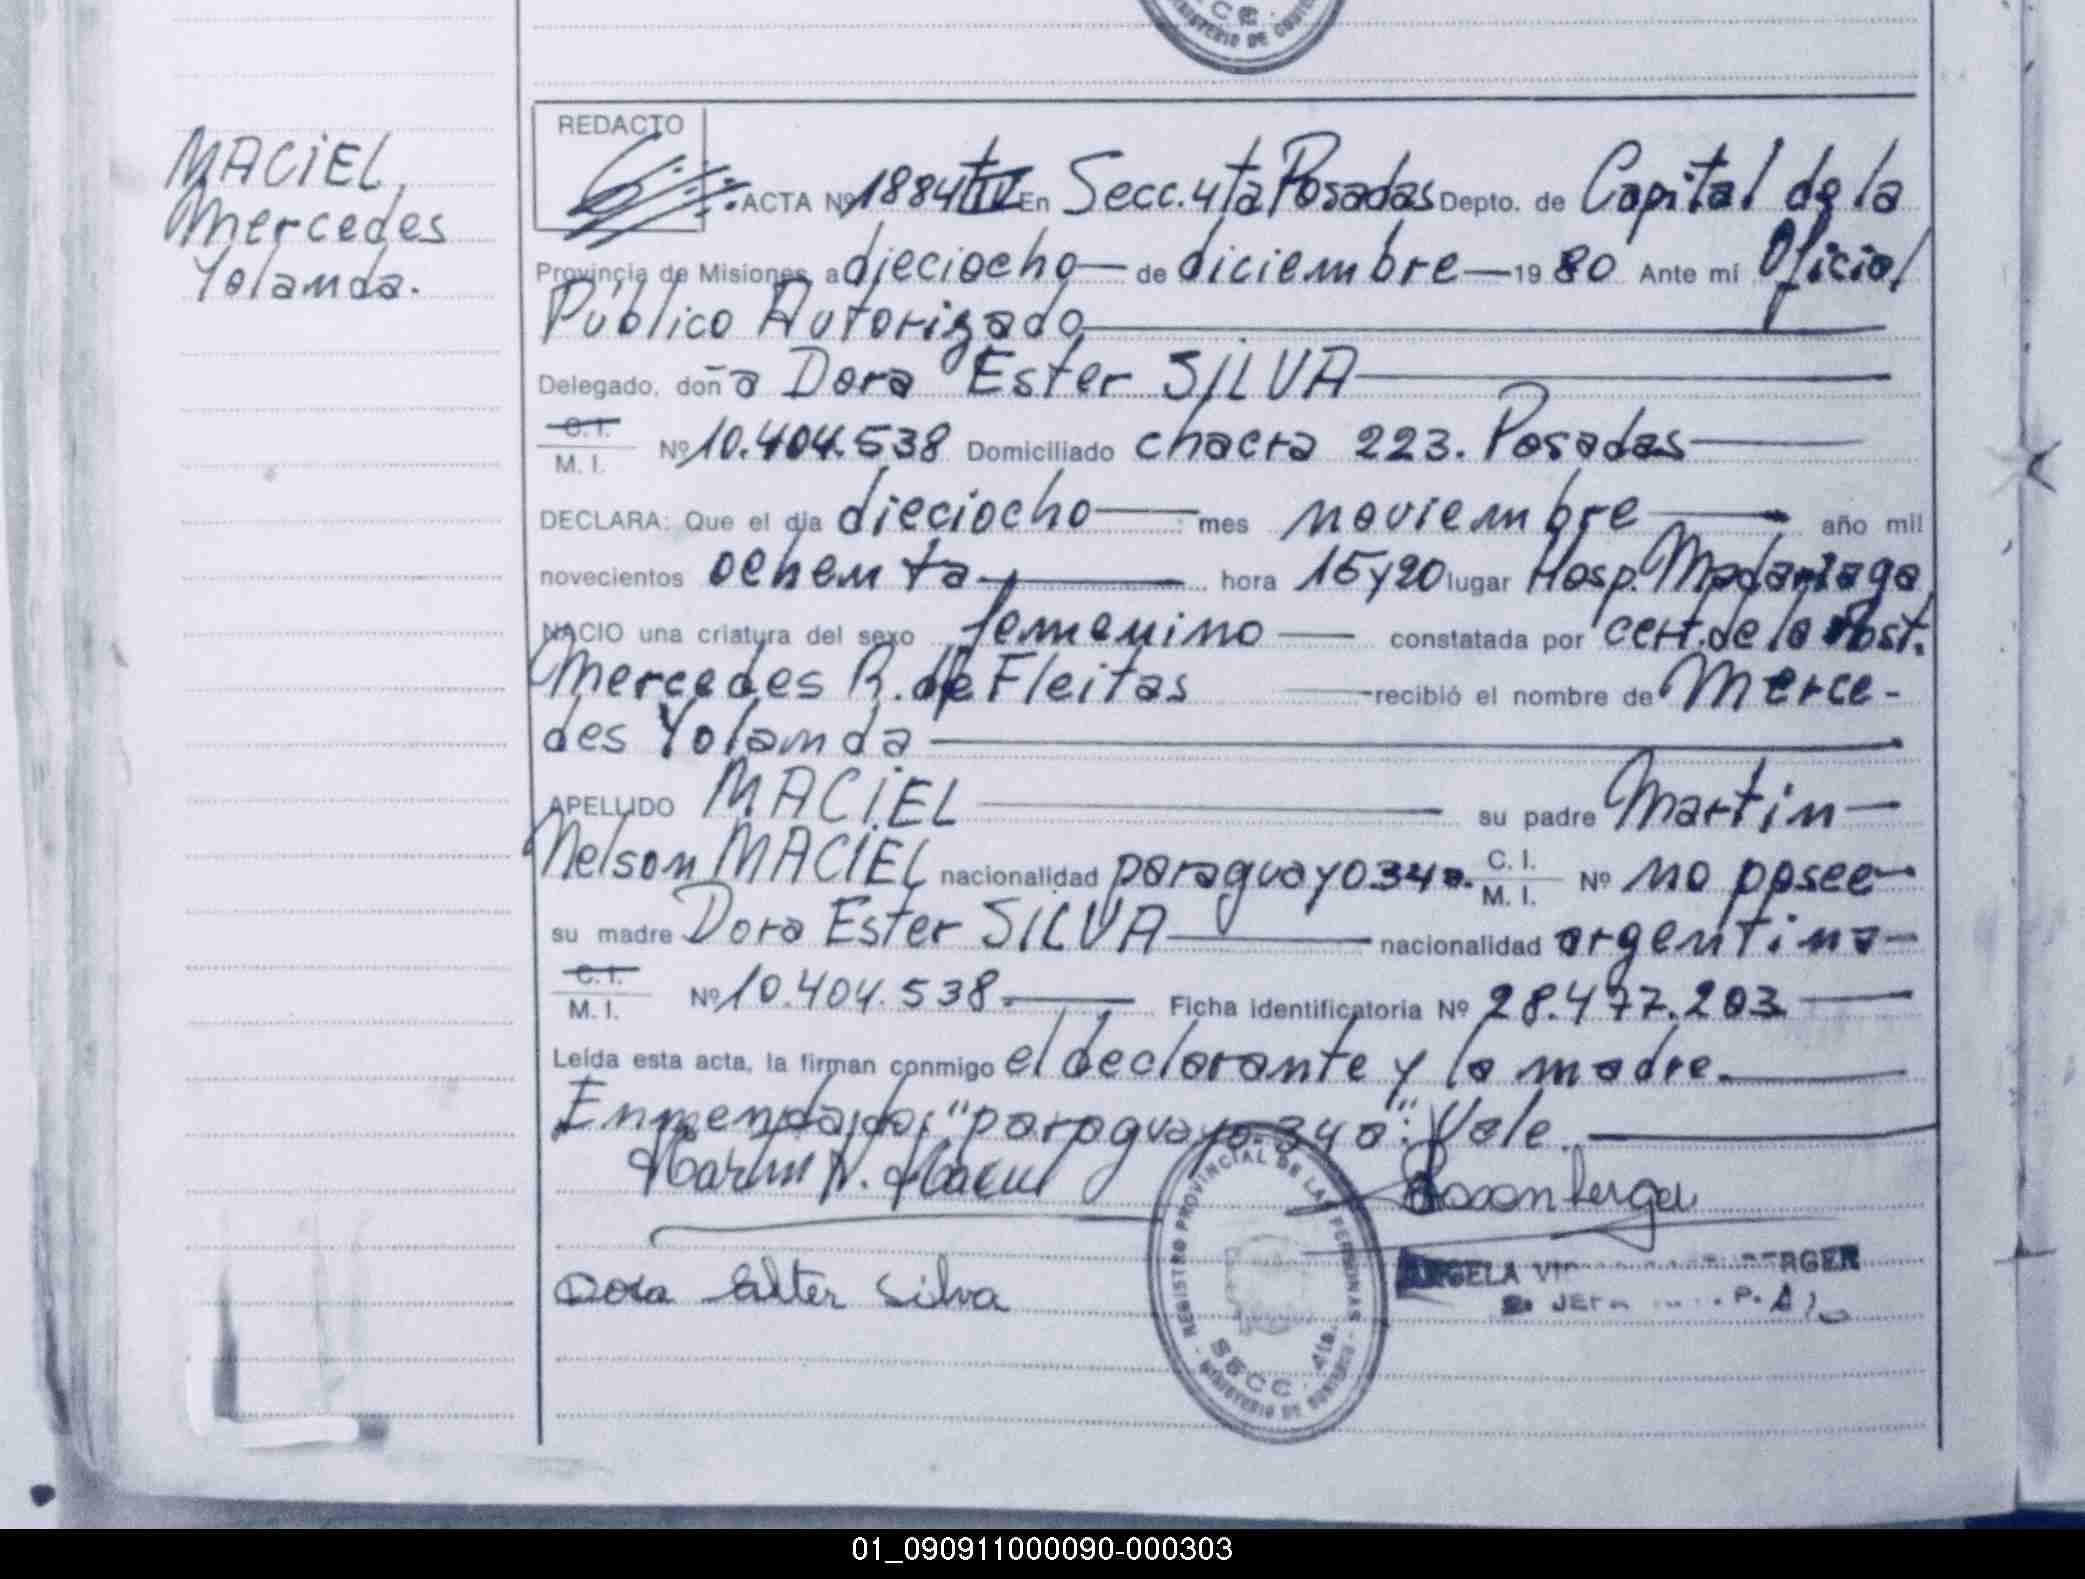 MINISTERIO DE GOBIERNO
MACIEL,
Mercedes
Yolanda.
REDACTO
ACTA Nº 1884 tIV En Secc. 4ta Posadas Depto. de Capital de la
Provincia de Misiones, a dieciocho de diciembre 1980 Ante mí Oficial
Público Autorizado
Delegado, doña Dora Ester SILVA
C. I.
M. I. Nº 10.404.538 Domiciliado chacra 223. Posadas
DECLARA: Que el día dieciocho mes noviembre año mil
novecientos ochenta hora 15y20 lugar Hosp. Madariaga
NACIO una criatura del sexo femenino constatada por cert. de la obst.
Mercedes R. de Fleitas recibió el nombre de Merce-
des Yolanda
APELLIDO MACIEL su padre Martin
Nelson MACIEL nacionalidad paraguayo.34a. C. I. M. I. Nº no posee
su madre Dora Ester SILVA nacionalidad argentina
C. I.
M. I. Nº 10.404.538. Ficha identificatoria Nº 28.477.203
Leída esta acta, la firman conmigo el declarante y la madre.
Enmendado: "paraguayo.34a": Vale
Martin N. Maciel
Dora Ester Silva
REGISTRO PROVINCIAL DE LAS PERSONAS
SECC. 4ta.
MINISTERIO DE GOBIERNO
ANGELA
01_090911000090-000303